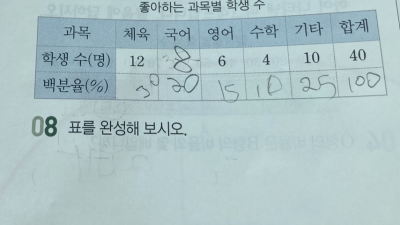 좋아하는 과목별 학생 수
과목 체육 국어 영어 수학 기타 합계
학생 수(명) 12 8 6 4 10 40
백분율(%) 30 20 15 10 25 100
08 표를 완성해 보시오.